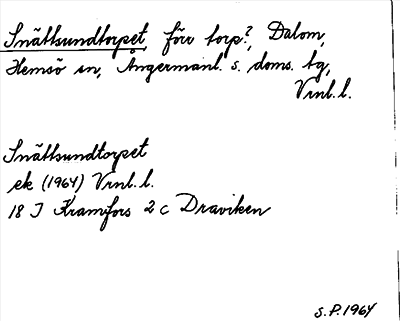 Snättsundtorpet, förr torp?, Dalom,
Hemsö sn, Ångermanl. s. doms. tg,
Vrnl.l.
Snättsundtorpet
ek (1964) Vrnl.l.
18 I Kramfors 2 c Draviken
S.P. 1964